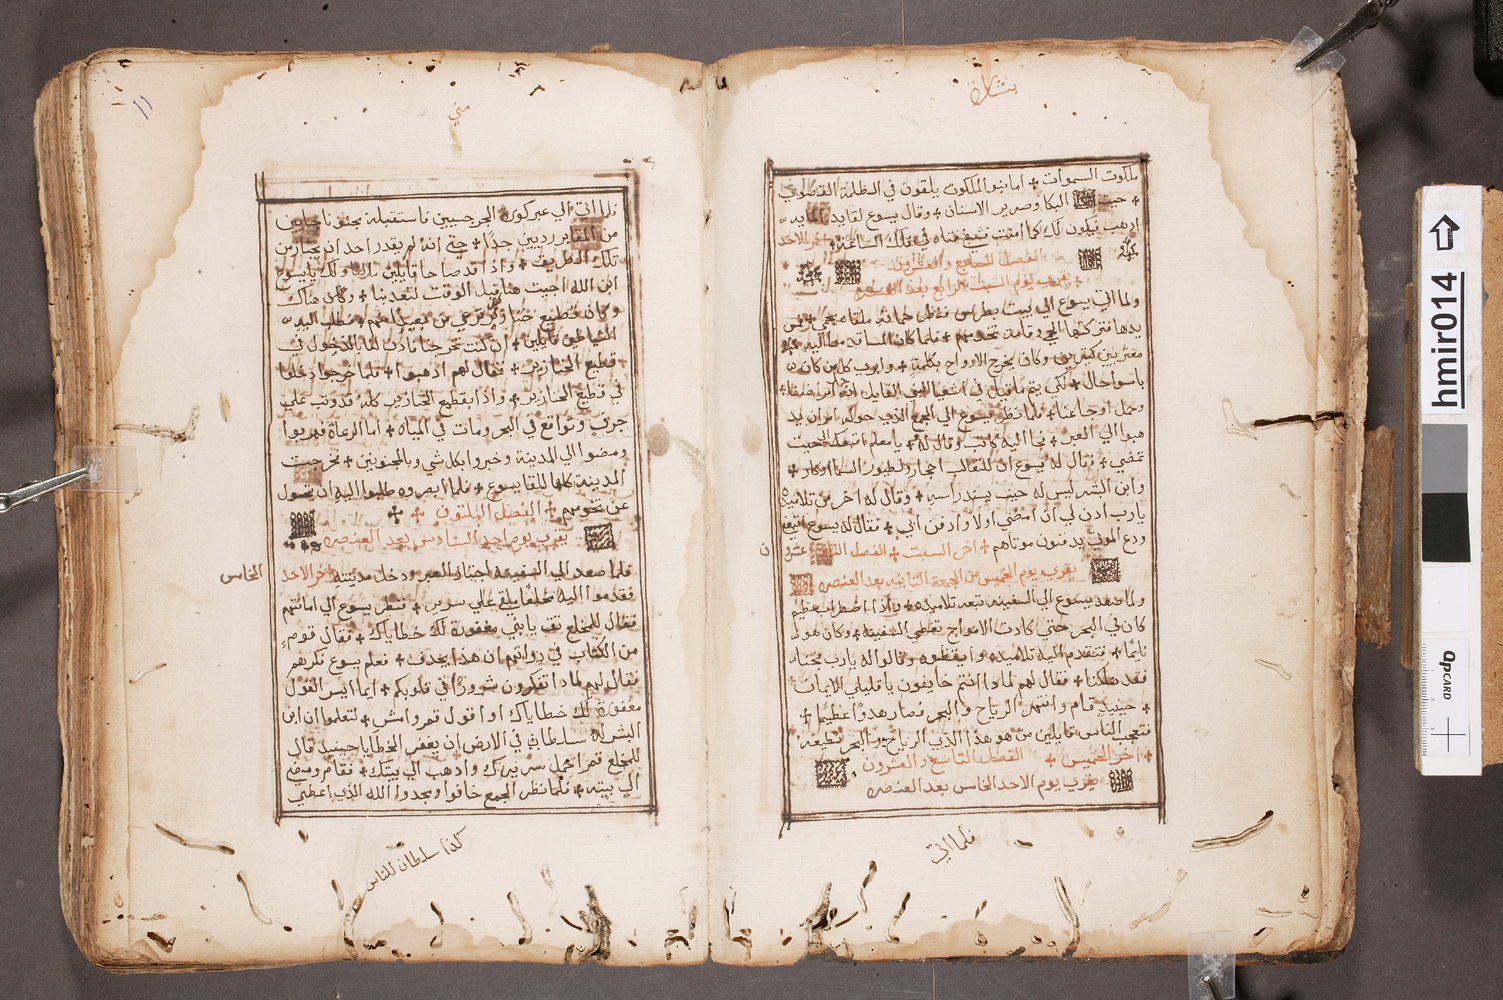 بشارة
ملكوت السموات + اما بنو الملكوت يلقون في الظلمة القصوي
+ حيث البكا وصرير الاسنان + وقال يسوع لقايد المايه
اذهب فيكون لك كما امنت فشفي فتاه في تلك الساعة + اخر الاحد
الفصل السابع والعشرون
يقري يوم السبت الرابع بعد العنصره
ولما اتي يسوع الي بيت بطرس فنظر حماته ملقاه
يدها فتركتها الحمي وقامت تخدمهم + فلما كان المسا قدموا اليه
معتريين كثيرين وكان يخرج الارواح بكلمة + وابري كل من كان
باسوا حال + لكي يتم ما قيل في اشعيا النبي القايل انه اخذ
وحمل اوجاعنا + فلما نظر يسوع الي الجمع الذي حوله امر ان يذ
هبوا الي العبر + فجا اليه كاتب وقال له + يا معلم اتبعك الي حيث
تمضي + فقال له يسوع ان للثعالب احجار ولطيور السما اوكار +
وابن البشر ليس له حيث يسند راسه + وقال له اخر من تلاميذه
يارب اذن لي ان امضي اولا وادفن ابي + فقال له يسوع اتبعني
ودع الموتي يدفنون موتاهم + اخر السبت + الفصل الثامن وعشرون
يقري يوم الخميس من الجمعة الثانيه بعد العنصره
ولما صعد يسوع الي السفينه تبعه تلاميذه + واذا اضطراب عظيم
كان في البحر حتي كادت الامواج تغطي السفينه + وكان هو
نايما + فتقدم اليه تلاميذه وايقظوه وقالوا له يارب نجنا
فقد هلكنا + فقال لهم لماذا انتم خايفون يا قليلي الايمان
+ حينيذ قام وانتهر الرياح والبحر فصار هدوا عظيما +
فتعجب الناس قايلين من هو هذا الذي الرياح والبحر تطيعه
+ اخر الخميس + الفصل التاسع والعشرون
يقري يوم الاحد الخامس بعد العنصره
فلما اتي
متي
١١
فلما اتي الي عبر كورة الجرجسيين فاستقبله مجنونان خارجين
من المقابر رديين جدا + حتي انه لم يقدر احد ان يجتاز من
تلك الطريق + واذا قد صاحا قايلين مالنا ولك يا يسوع
ابن الله اجيت هنا قبل الوقت لتعذبنا + وكان هناك
قطيع خنازير ترعي من بعيد عنهم + فطلب اليه
الشياطين قايلين + ان كنت تخرجنا فاذن لنا بالدخول في
قطيع الخنازير + فقال لهم اذهبوا + فلما خرجوا دخلوا
في قطيع الخنازير + واذا بقطيع الخنازير كله قد وثب علي
جرف وتواقع في البحر ومات في المياه + اما الرعاة فهربوا
ومضوا الي المدينة وخبروا بكل شي وبالمجنونين + فخرجت
المدينة كلها للقا يسوع + فلما ابصروه طلبوا اليه ان يتحول
عن تخومهم + الفصل الثلثون +
يقري يوم احد السادس بعد العنصره
فلما صعد الي السفينه اجتاز العبر ودخل مدينته اخر الاحد
الخامس
فقدموا اليه مخلعا ملقي علي سرير + فنظر يسوع الي امانتهم
فقال للمخلع ثق يا بني مغفورة لك خطاياك + فقال قوم
من الكتاب في ذواتهم ان هذا يجدف + فعلم يسوع فكرهم
فقال لهم لماذا تفكرون شرورا في قلوبكم + ايما ايسر القول
مغفورة لك خطاياك او اقول قم وامش + لتعلموا ان ابن
البشر له سلطان في الارض ان يغفر الخطايا حينيذ قال
للمخلع قم احمل سريرك واذهب الي بيتك + فقام ومضي
الي بيته + فلما نظر الجمع خافوا ومجدوا الله الذي اعطي
كذا سلطان للناس
hmir014
QPCARD